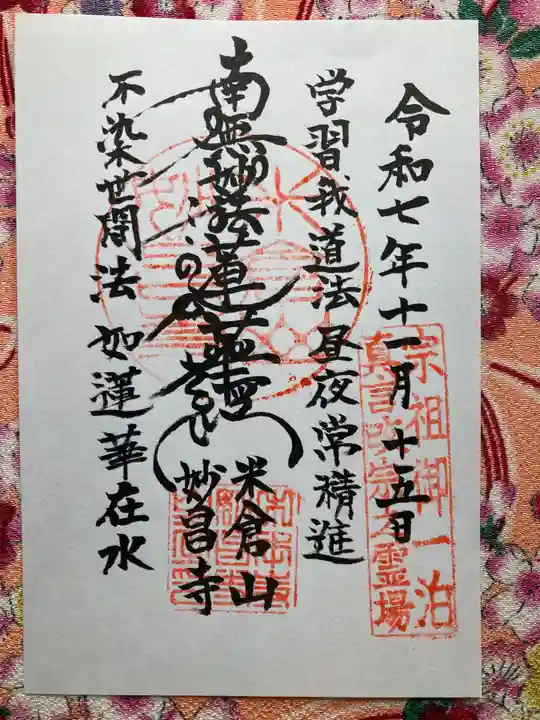 令和七年十一月十五日
宗祖御一泊
霊場
学習我道法昼夜常精進
南無妙法蓮華経
米倉山
妙昌寺
不染世間法如蓮華在水